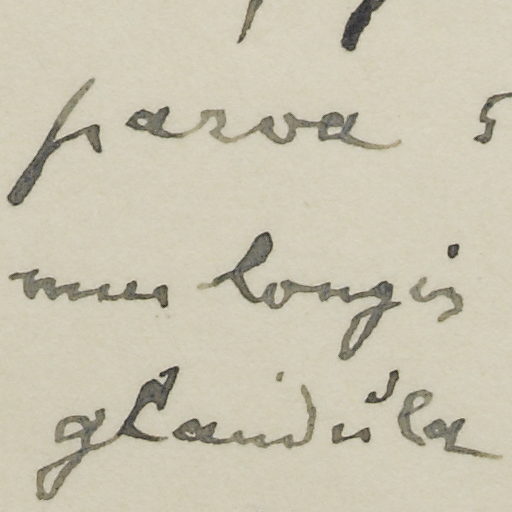 parva 5
mm longis
glandula